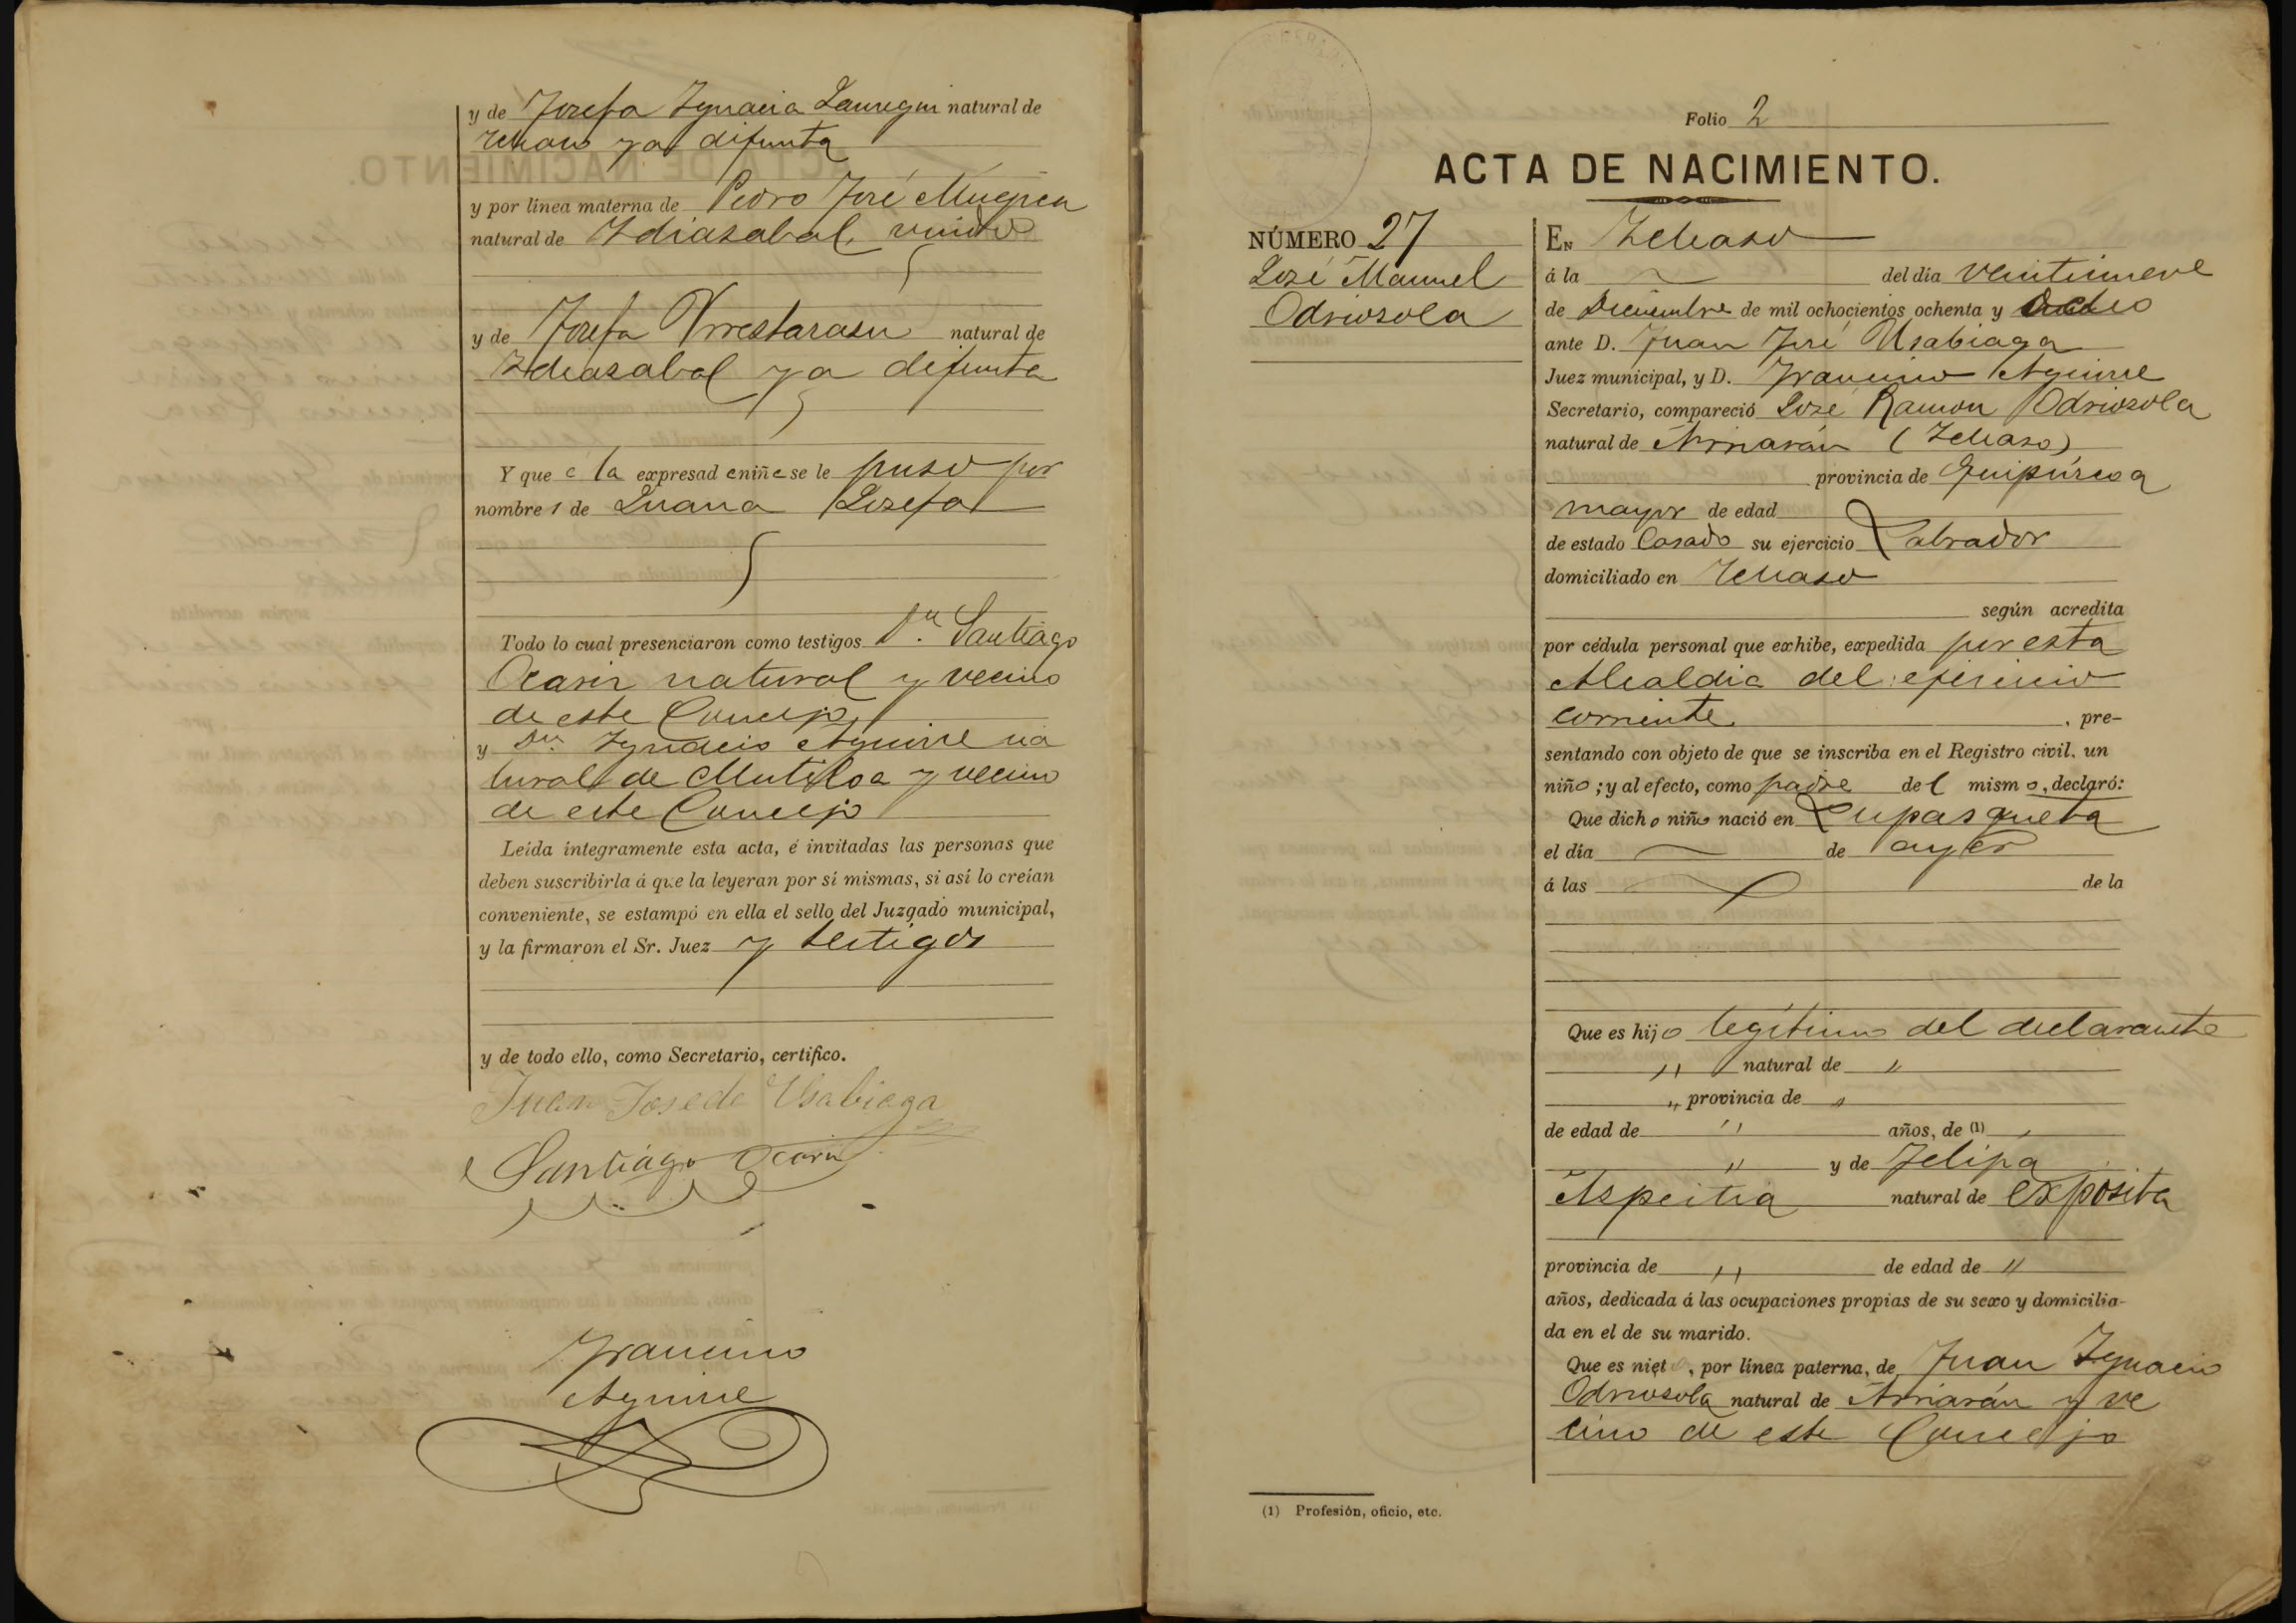 y de Josefa Ygnacia Jauregui natural de
Ichaso ya difunta
y por línea materna de Pedro José Mugica
natural de Idiazabal, viudo
y de Josefa Urrestarasu natural de
Idiazabal ya difunta
Y que á la expresad a niña se le puso por
nombre s de Juana Josefa
Todo lo cual presenciaron como testigos Dn. Santiago
Ocariz natural y vecino
de este Concejo
y Dn. Ygnacio Aguirre na
tural de Mutiloa y vecino
de este Concejo
Leída íntegramente esta acta, é invitadas las personas que
deben suscribirla á que la leyeran por sí mismas, si así lo creían
conveniente, se estampó en ella el sello del Juzgado municipal,
y la firmaron el Sr. Juez y testigos
y de todo ello, como Secretario, certifico.
Juan Jose de Usabiaga
Santiago Ocariz
Francisco
Aguirre
Folio 2
ACTA DE NACIMIENTO.
NÚMERO 27
José Manuel
Odriozola
EN Ichaso
á la del día veintinueve
de Diciembre de mil ochocientos ochenta y ocho
ante D. Juan José Usabiaga
Juez municipal, y D. Francisco Aguirre
Secretario, compareció José Ramon Odriozola
natural de Arriarán (Ichaso)
provincia de Guipúzcoa
mayor de edad
de estado Casado su ejercicio Labrador
domiciliado en Ichaso
según acredita
por cédula personal que exhibe, expedida por esta
Alcaldia del ejercicio
corriente , pre-
sentando con objeto de que se inscriba en el Registro civil, un
niño; y al efecto, como padre del mismo, declaró:
Que dicho niño nació en Lupasqueta
el día de ayer
á las de la
Que es hijo legítimo del declarante
" natural de "
" provincia de "
de edad de " años, de (1)
" y de Felipa
Aspeitia natural de expósita
provincia de " de edad de "
años, dedicada á las ocupaciones propias de su sexo y domicilia-
da en el de su marido.
Que es niet , por línea paterna, de Juan Ygnacio
Odriozola natural de Arriarán y ve
cino de este Concejo
(1) Profesión, oficio, etc.